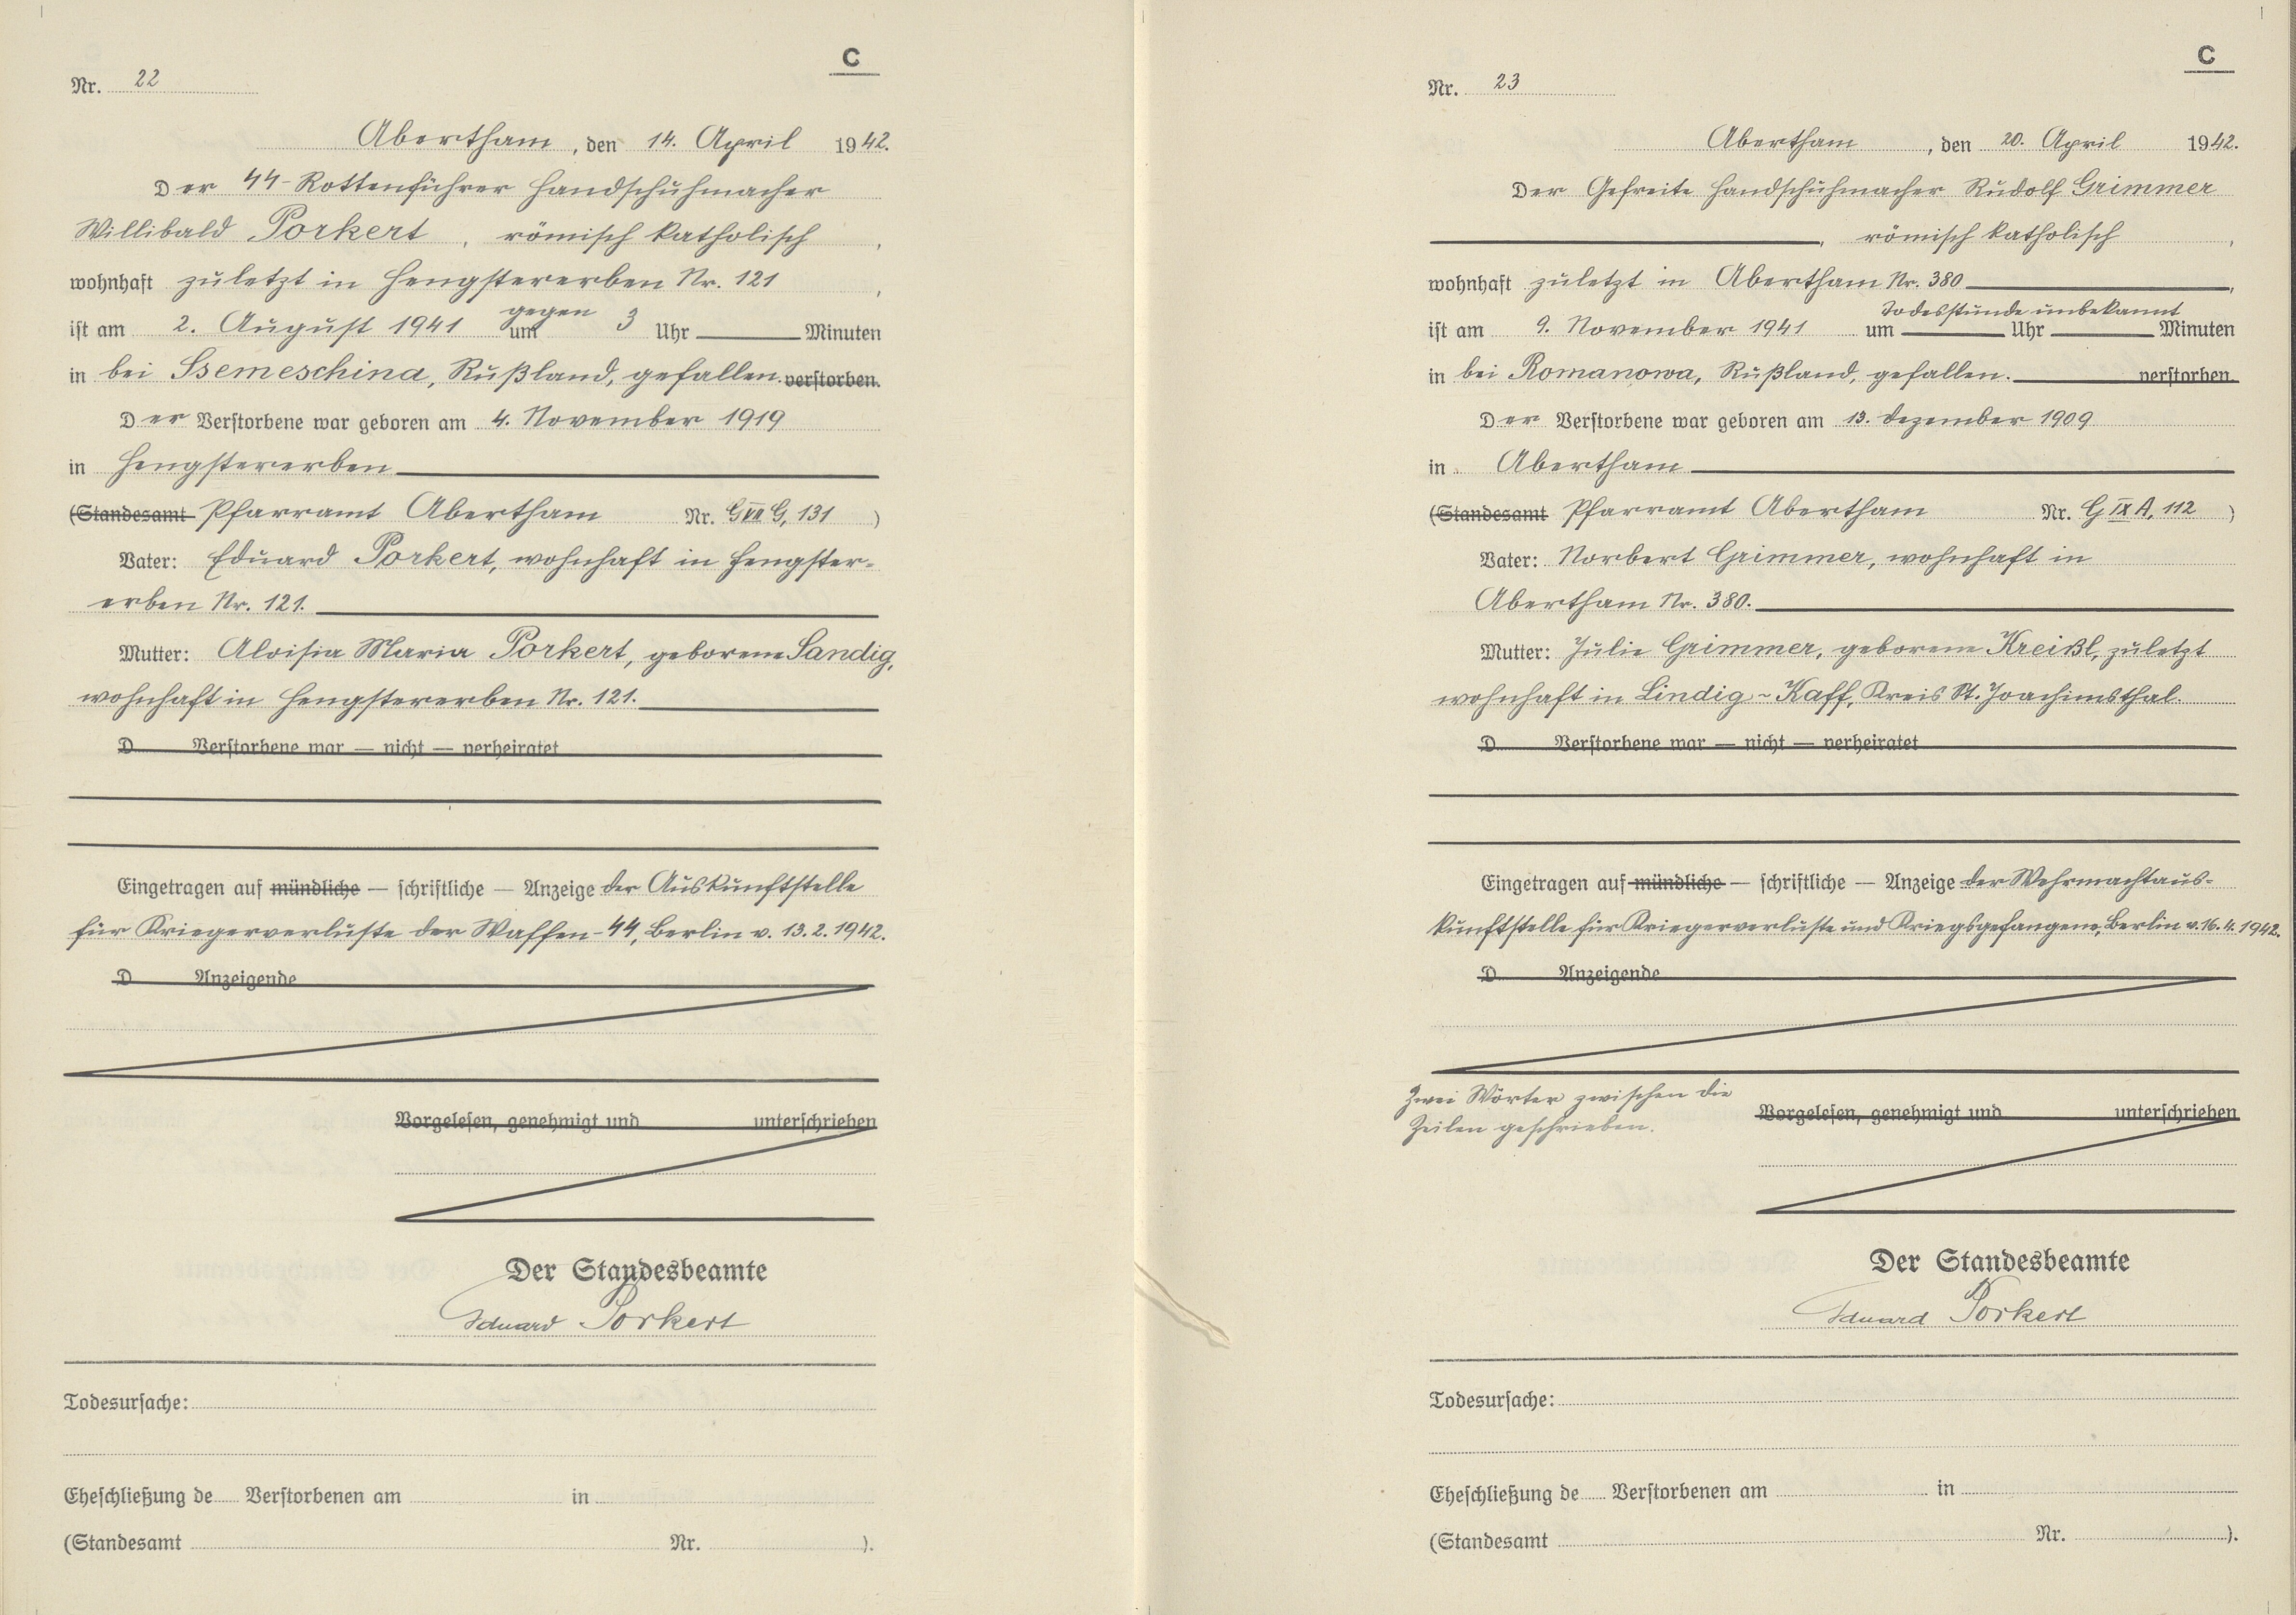 C
Nr. 22
Abertham, den 14. April 1942.
Der SS-Rottenführer Handschuhmacher
Willibald Porkert, römisch katholisch,
wohnhaft zuletzt in Hengstererben Nr. 121,
gegen
ist am 2. August 1941 um 3 Uhr Minuten
in bei Ssemeschina, Rußland, gefallen. verstorben.
Der Verstorbene war geboren am 4. November 1919
in Hengstererben
(Standesamt Pfarramt Abertham Nr. G VII G, 131)
Vater: Eduard Porkert, wohnhaft in Hengster-
erben Nr. 121.
Mutter: Aloisia Maria Porkert, geborene Sandig,
wohnhaft in Hengstererben Nr. 121.
D Verstorbene war — nicht — verheiratet
Eingetragen auf mündliche — schriftliche — Anzeige der Auskunftstelle
für Kriegerverluste der Waffen-SS, Berlin v. 13.2.1942.
D Anzeigende
Vorgelesen, genehmigt und unterschrieben
Der Standesbeamte
Eduard Porkert
Todesursache:
Eheschließung de Verstorbenen am in
(Standesamt Nr. ).
C
Nr. 23
Abertham, den 20. April 1942.
Der Gefreite Handschuhmacher Rudolf Grimmer
, römisch katholisch,
wohnhaft zuletzt in Abertham Nr. 380,
Todesstunde unbekannt
ist am 9. November 1941 um Uhr Minuten
in bei Romanowa, Rußland, gefallen. verstorben.
Der Verstorbene war geboren am 13. Dezember 1909
in Abertham
(Standesamt Pfarramt Abertham Nr. G IX A, 112)
Vater: Norbert Grimmer, wohnhaft in
Abertham Nr. 380.
Mutter: Julie Grimmer, geborene Kreißl, zuletzt
wohnhaft in Lindig-Kaff, Kreis St. Joachimsthal.
D Verstorbene war — nicht — verheiratet
Eingetragen auf mündliche — schriftliche — Anzeige der Wehrmachtaus-
kunftstelle für Kriegerverluste und Kriegsgefangene, Berlin v. 16.4.1942.
D Anzeigende
Zwei Wörter zwischen die
Zeilen geschrieben.
Vorgelesen, genehmigt und unterschrieben
Der Standesbeamte
Eduard Porkert
Todesursache:
Eheschließung de Verstorbenen am in
(Standesamt Nr. ).